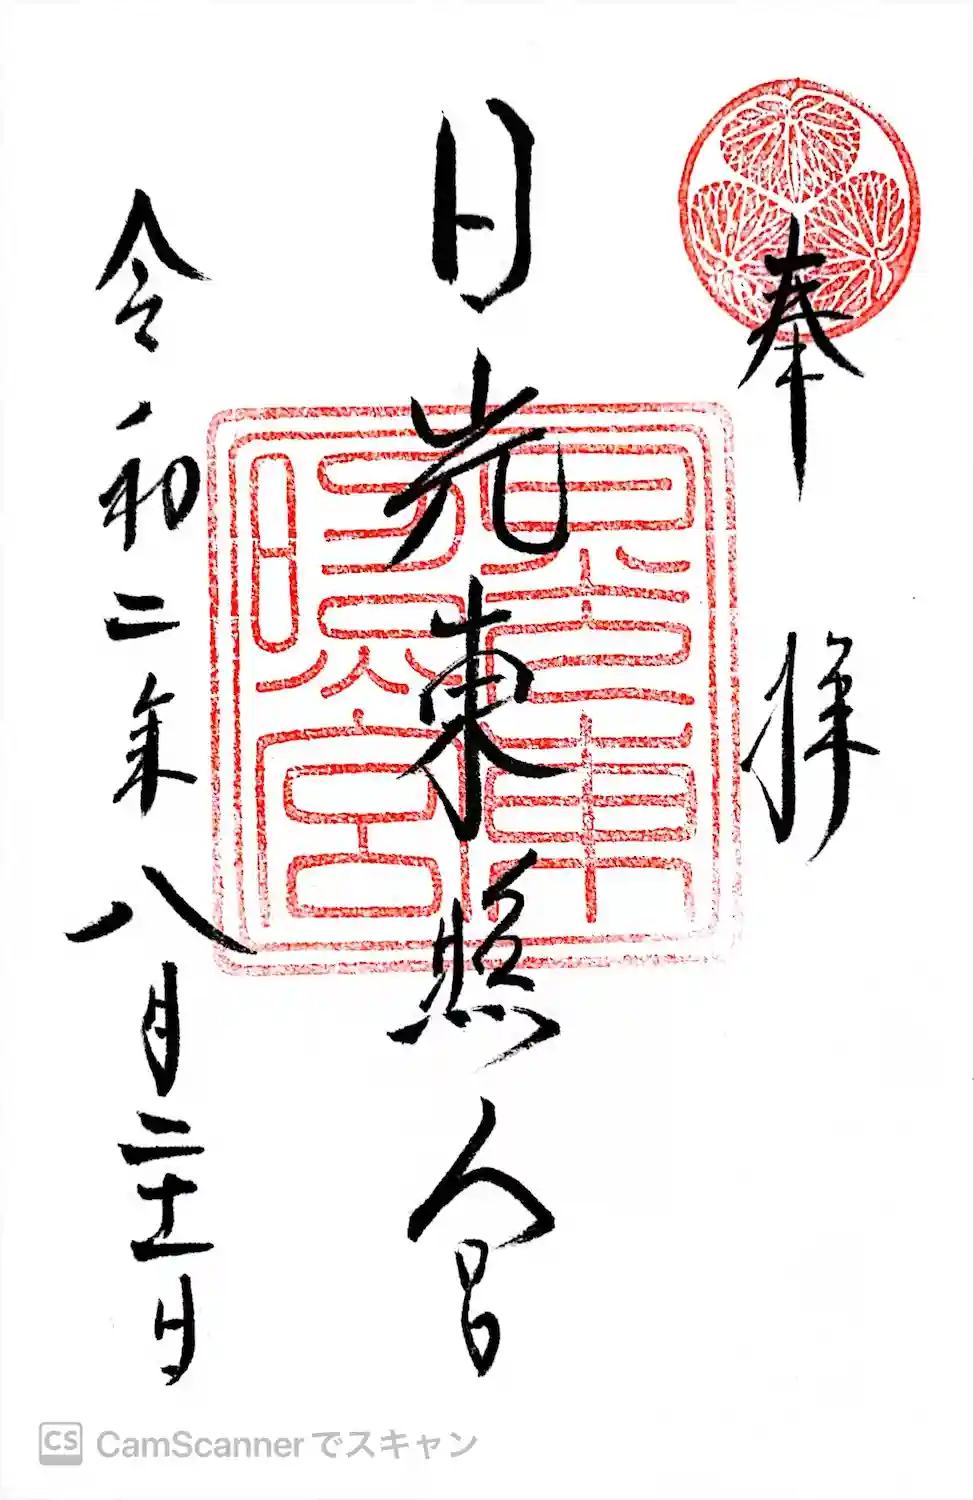 奉拝
日光東照宮
令和二年八月二十一日
日光東
照宮
CS CamScannerでスキャン